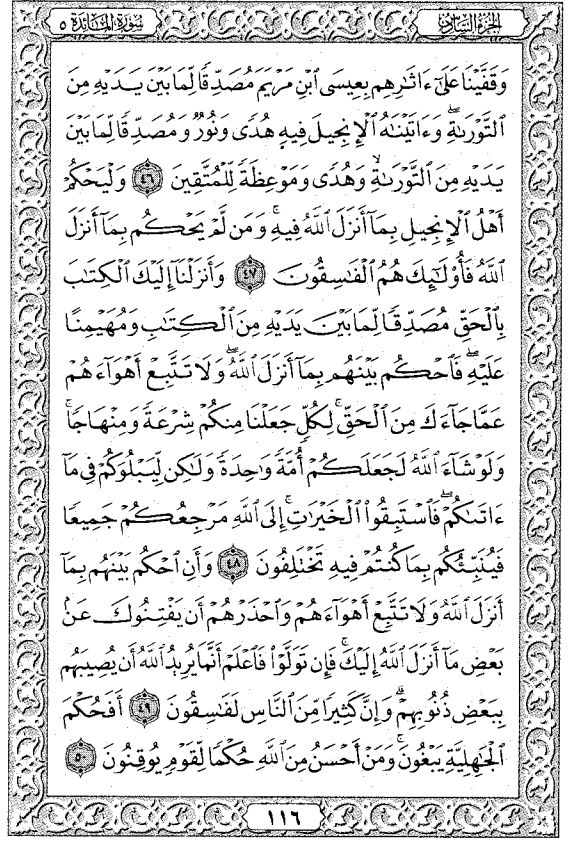 سُورَةُ المَائدَة ٥
الجزءُ السَّادس
وَقَفَّيْنَا عَلَىٰٓ ءَاثَٰرِهِم بِعِيسَى ٱبْنِ مَرْيَمَ مُصَدِّقًا لِّمَا بَيْنَ يَدَيْهِ مِنَ
ٱلتَّوْرَىٰةِ ۖ وَءَاتَيْنَٰهُ ٱلْإِنجِيلَ فِيهِ هُدًى وَنُورٌ وَمُصَدِّقًا لِّمَا بَيْنَ
يَدَيْهِ مِنَ ٱلتَّوْرَىٰةِ وَهُدًى وَمَوْعِظَةً لِّلْمُتَّقِينَ ٤٦ وَلْيَحْكُمْ
أَهْلُ ٱلْإِنجِيلِ بِمَآ أَنزَلَ ٱللَّهُ فِيهِ ۚ وَمَن لَّمْ يَحْكُم بِمَآ أَنزَلَ
ٱللَّهُ فَأُو۟لَٰٓئِكَ هُمُ ٱلْفَٰسِقُونَ ٤٧ وَأَنزَلْنَآ إِلَيْكَ ٱلْكِتَٰبَ
بِٱلْحَقِّ مُصَدِّقًا لِّمَا بَيْنَ يَدَيْهِ مِنَ ٱلْكِتَٰبِ وَمُهَيْمِنًا
عَلَيْهِ ۖ فَٱحْكُم بَيْنَهُم بِمَآ أَنزَلَ ٱللَّهُ ۖ وَلَا تَتَّبِعْ أَهْوَآءَهُمْ
عَمَّا جَآءَكَ مِنَ ٱلْحَقِّ ۚ لِكُلٍّ جَعَلْنَا مِنكُمْ شِرْعَةً وَمِنْهَاجًا ۚ
وَلَوْ شَآءَ ٱللَّهُ لَجَعَلَكُمْ أُمَّةً وَٰحِدَةً وَلَٰكِن لِّيَبْلُوَكُمْ فِى مَآ
ءَاتَىٰكُمْ ۖ فَٱسْتَبِقُوا۟ ٱلْخَيْرَٰتِ ۚ إِلَى ٱللَّهِ مَرْجِعُكُمْ جَمِيعًا
فَيُنَبِّئُكُم بِمَا كُنتُمْ فِيهِ تَخْتَلِفُونَ ٤٨ وَأَنِ ٱحْكُم بَيْنَهُم بِمَآ
أَنزَلَ ٱللَّهُ وَلَا تَتَّبِعْ أَهْوَآءَهُمْ وَٱحْذَرْهُمْ أَن يَفْتِنُوكَ عَنۢ
بَعْضِ مَآ أَنزَلَ ٱللَّهُ إِلَيْكَ ۖ فَإِن تَوَلَّوْا۟ فَٱعْلَمْ أَنَّمَا يُرِيدُ ٱللَّهُ أَن يُصِيبَهُم
بِبَعْضِ ذُنُوبِهِمْ ۗ وَإِنَّ كَثِيرًا مِّنَ ٱلنَّاسِ لَفَٰسِقُونَ ٤٩ أَفَحُكْمَ
ٱلْجَٰهِلِيَّةِ يَبْغُونَ ۚ وَمَنْ أَحْسَنُ مِنَ ٱللَّهِ حُكْمًا لِّقَوْمٍ يُوقِنُونَ ٥٠
١١٦